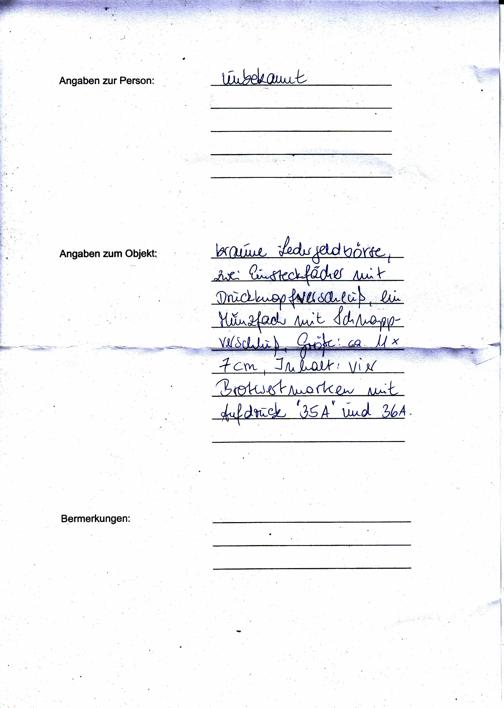 Angaben zur Person: unbekannt
Angaben zum Objekt: braune Ledergeldbörse,
zwei Einsteckfächer mit
Druckknopfverschluß, ein
Münzfach mit Schnapp-
verschluß, Größe: ca 11 x
7 cm, Inhalt: vier
Brotwertmarken mit
Aufdruck "35A" und 36A.
Bermerkungen: